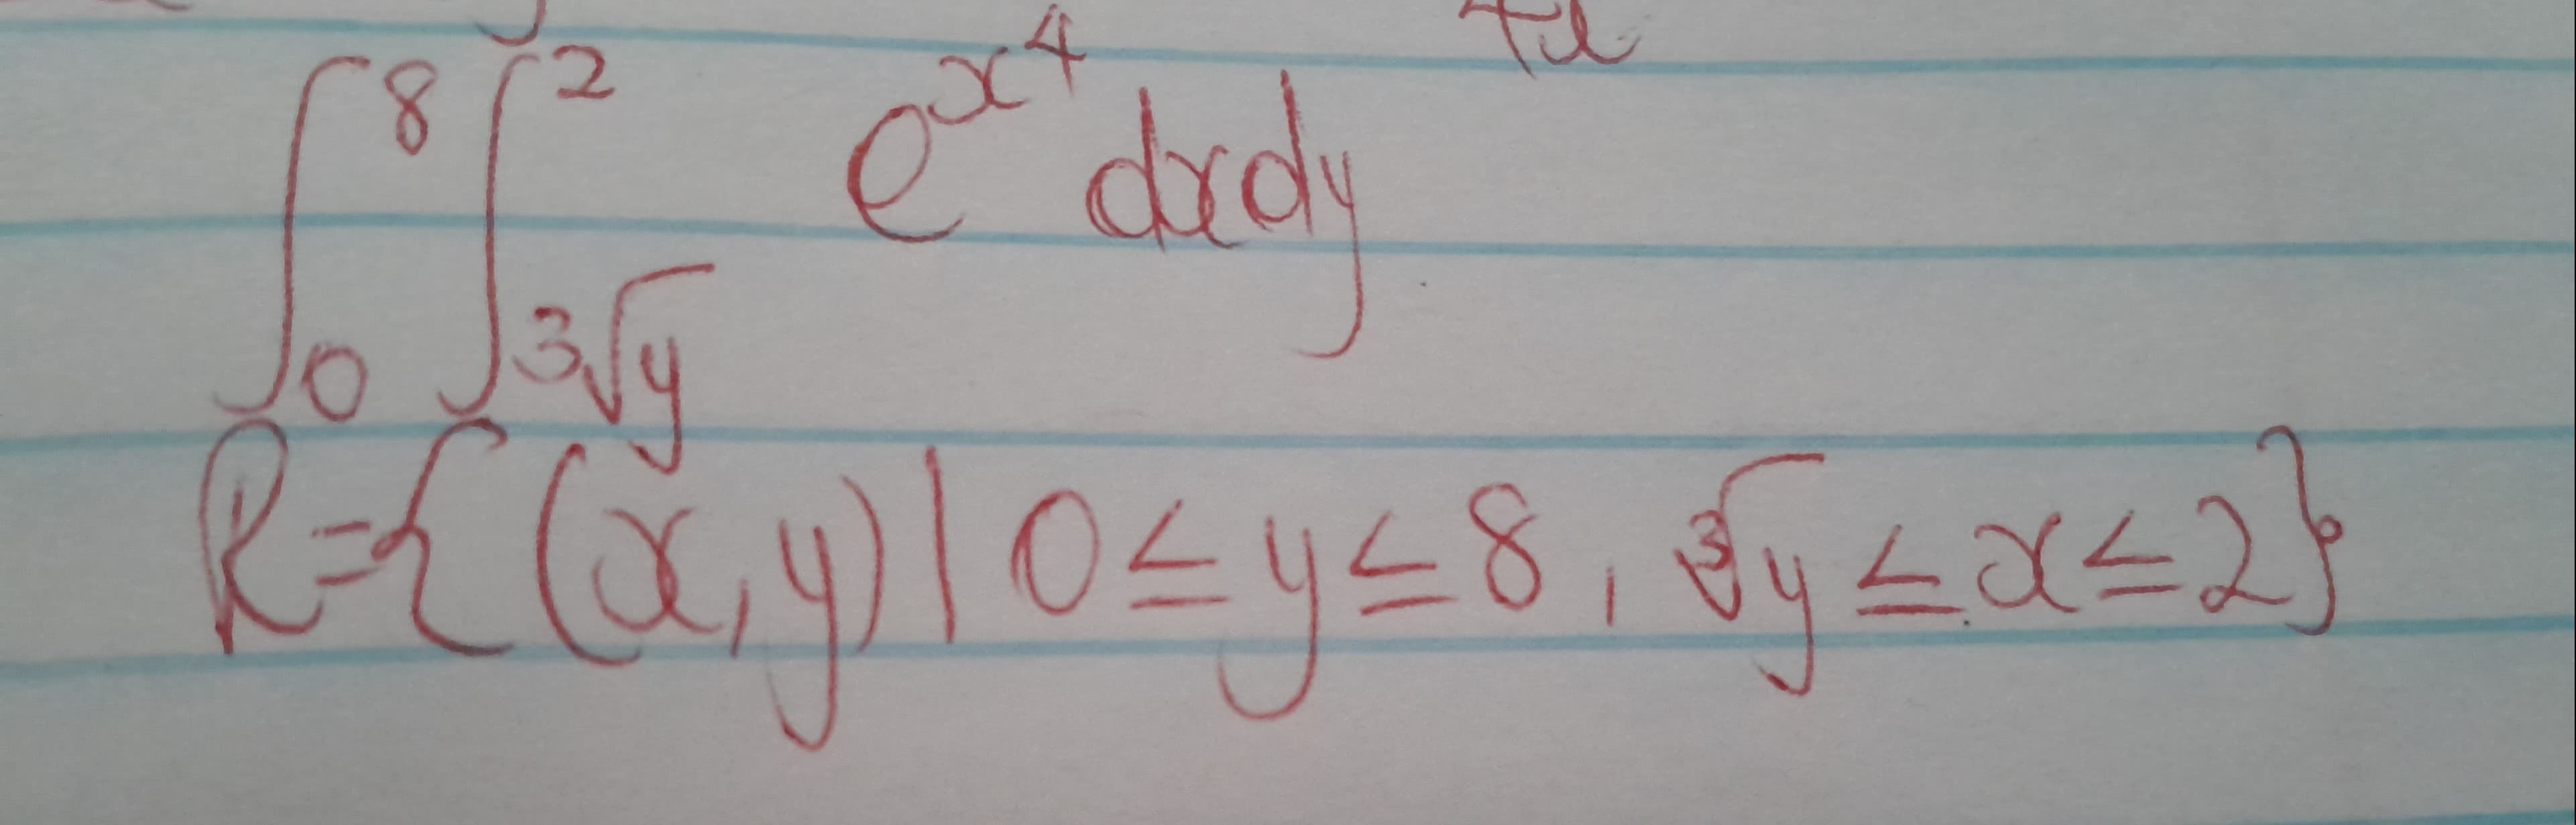 ∫₀⁸ ∫_{∛y}^{2} e^{x^4} dxdy
R={(x,y)| 0≤y≤8, ∛y≤x≤2}